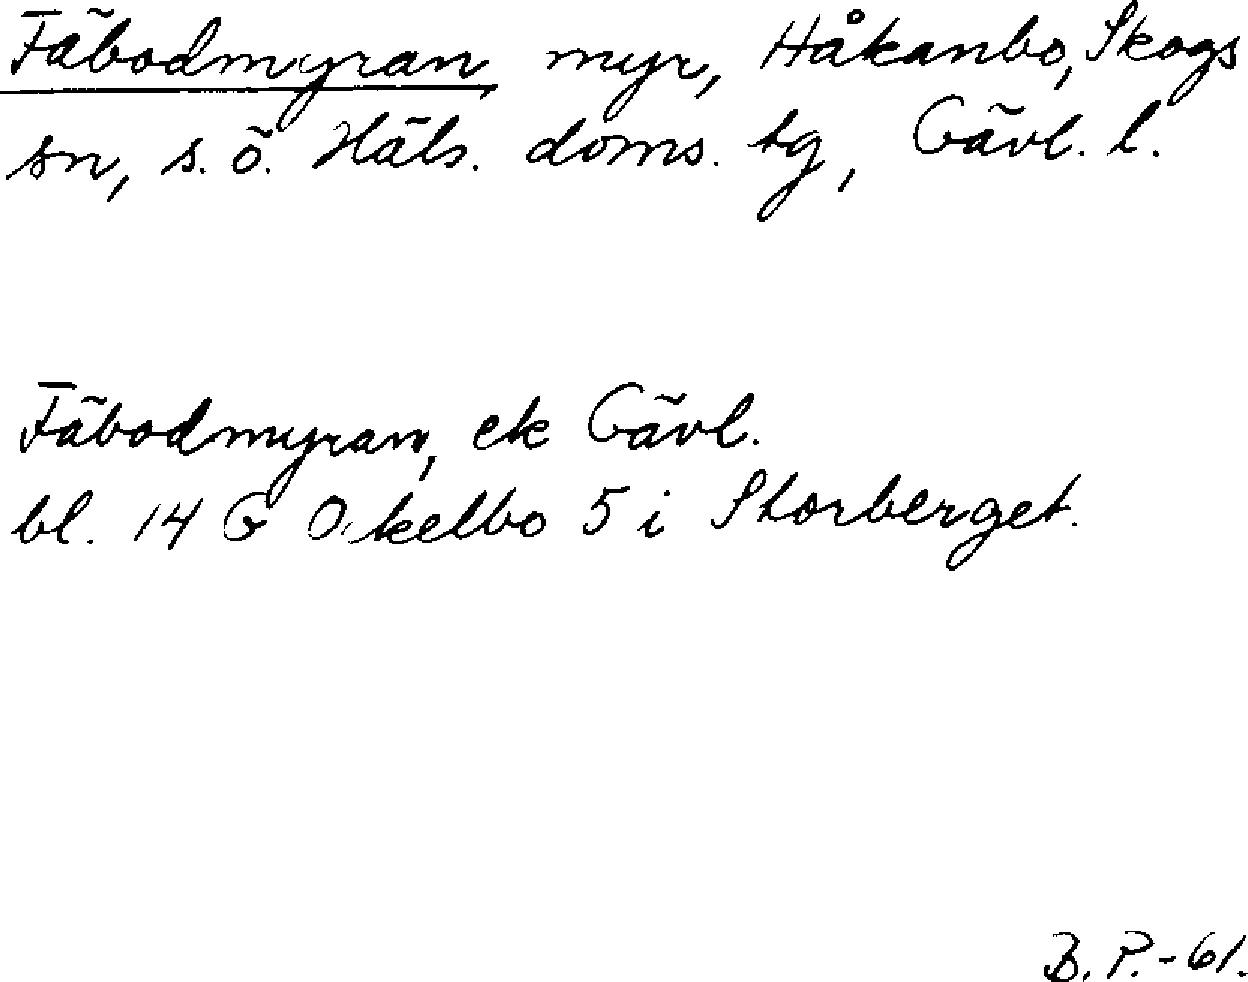 Fäbodmyran, myr, Håkanbo, Skogs
sn, s. ö. Häls. doms. tg, Gävl. l.
Fäbodmyran, ek Gävl.
bl. 14 G Ockelbo 5 i Storberget.
B. P. - 61.